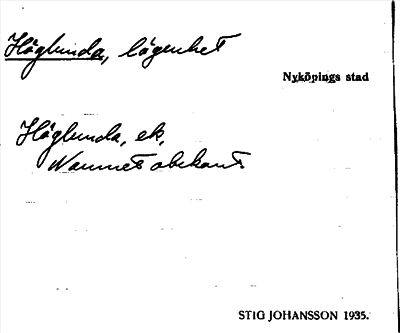 Höglunda, lägenhet
Nyköpings stad
Höglunda, ek,
Namnet obekant.
STIG JOHANSSON 1935.